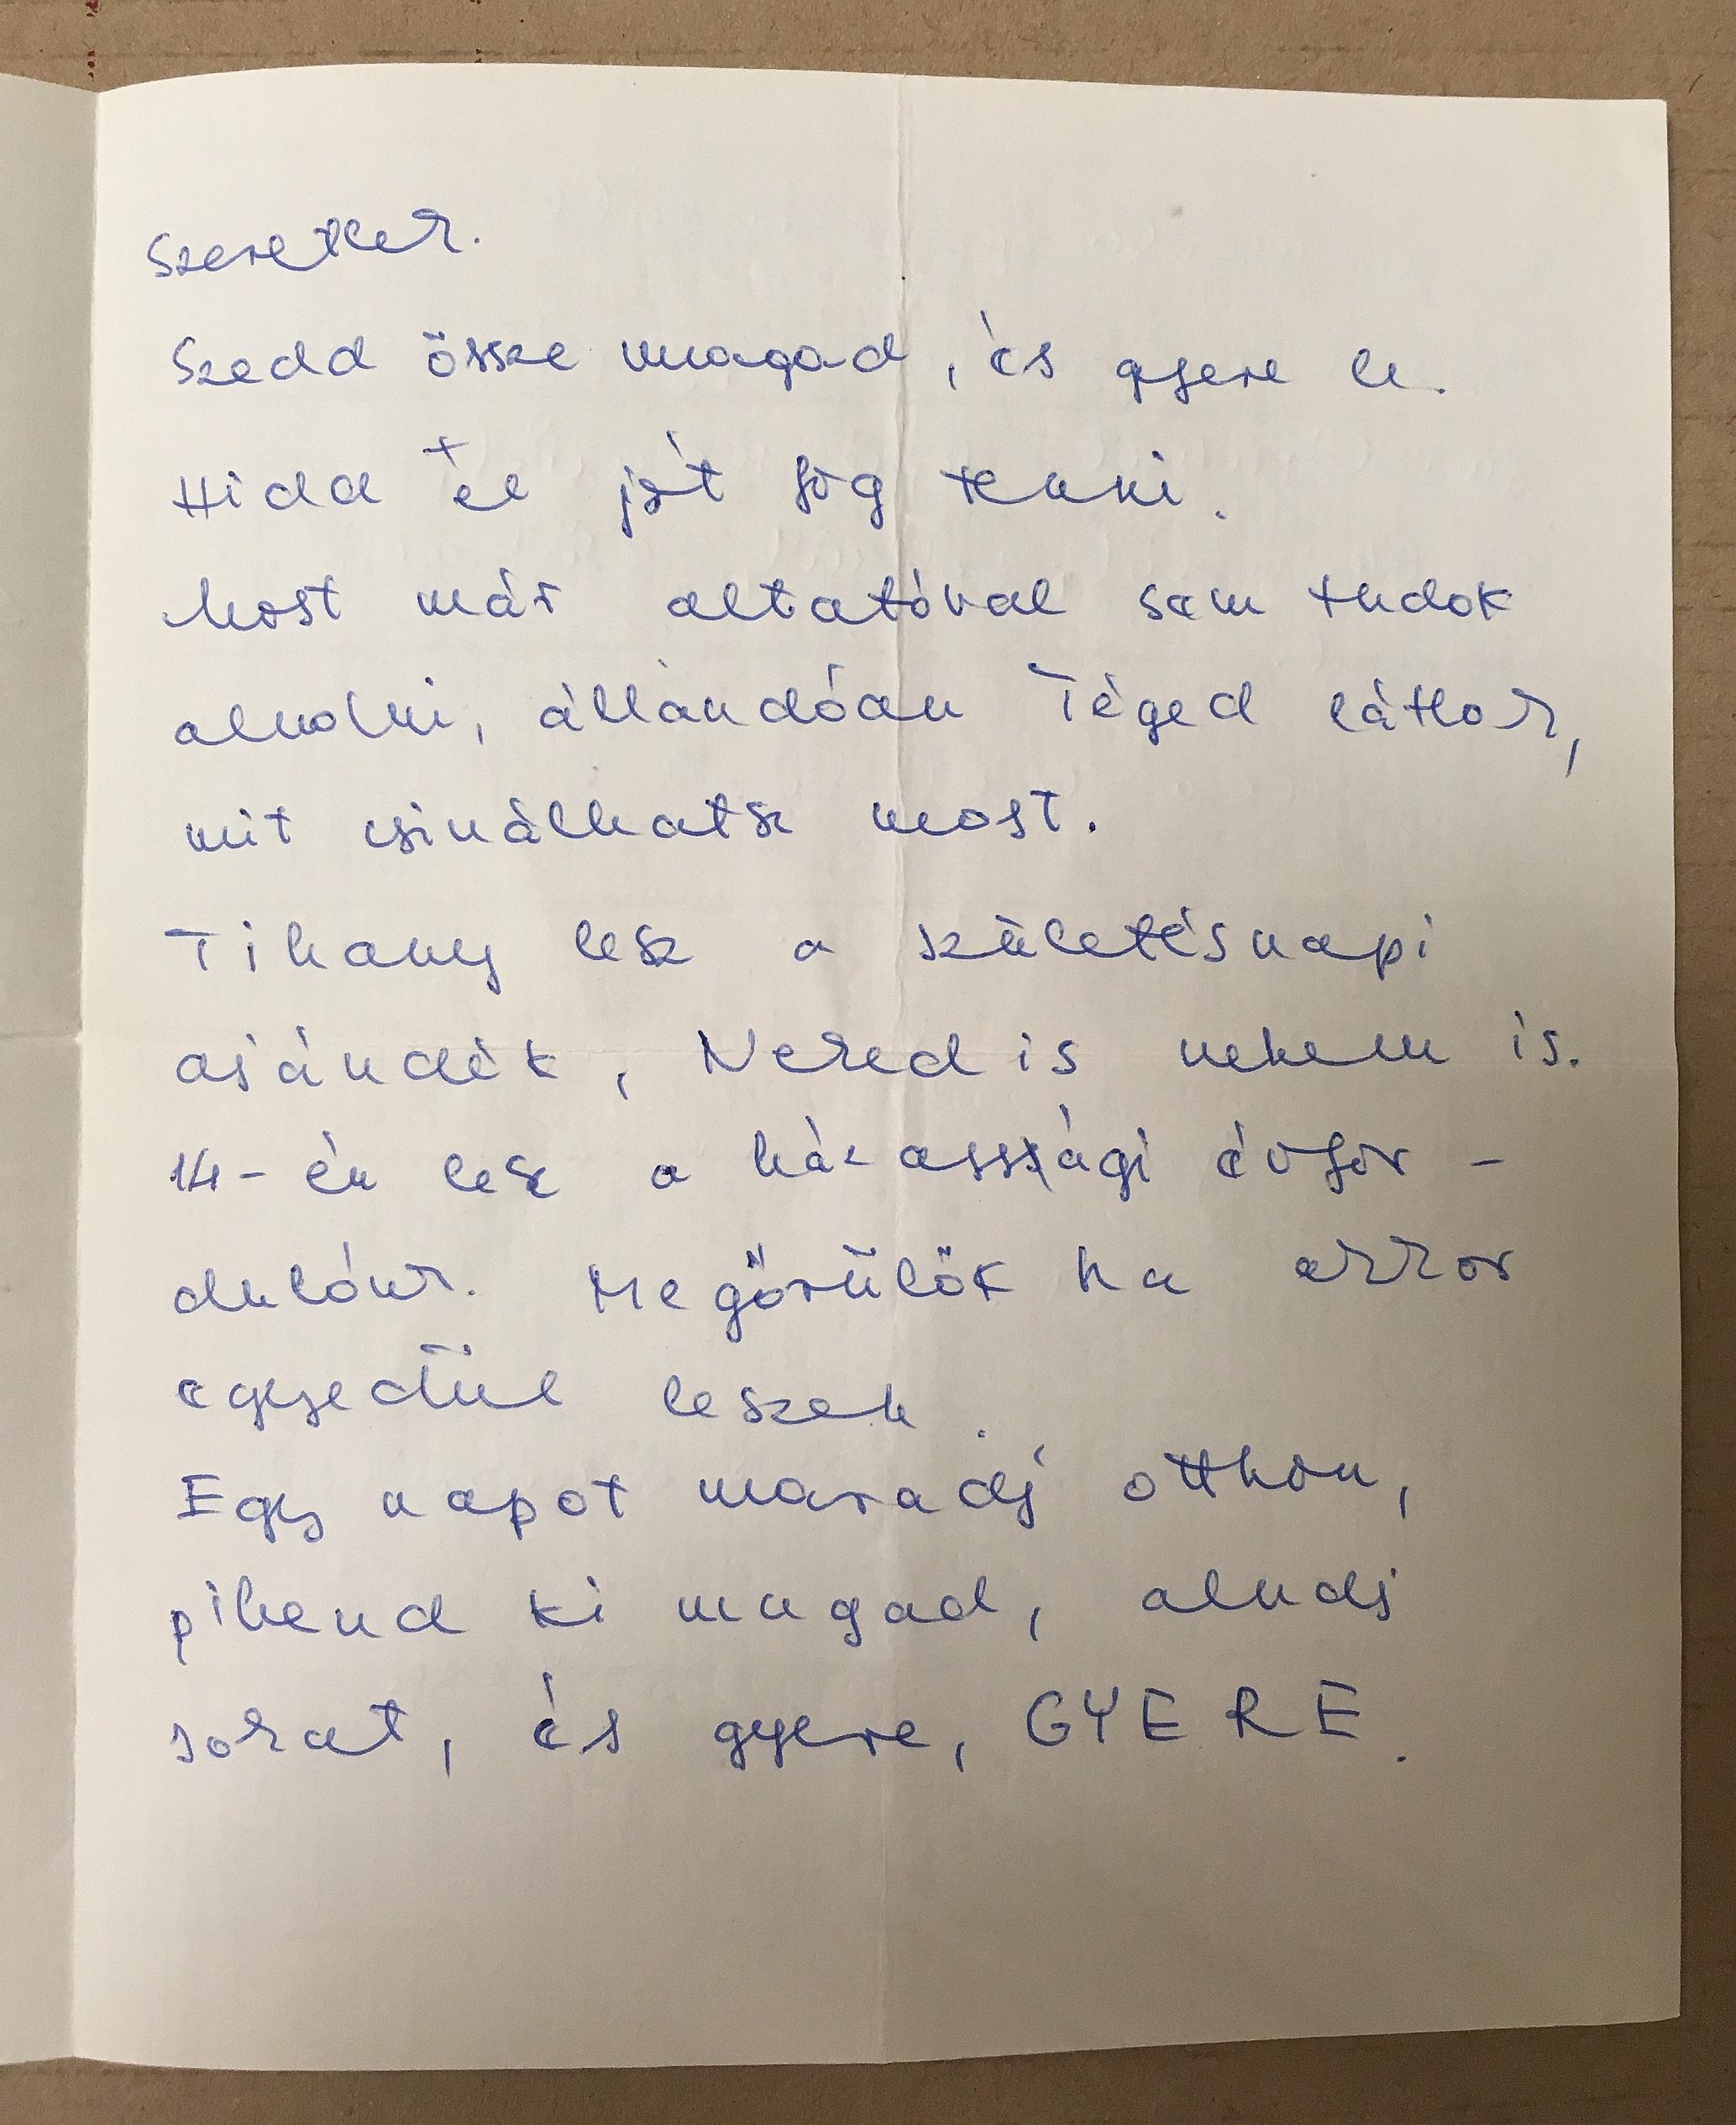 Szeretlek.
Szedd össze magad, és gyere le.
Hidd el jót fog tenni.
Most már altatóval sem tudok
aludni, állandóan Téged látlak,
mit csinálhatsz most.
Tihany lesz a születésnapi
ajándék, Neked is nekem is.
14-én lesz a házassági évfor-
dulónk. Megőrülök ha akkor
egyedül leszek.
Egy napot maradj otthon,
pihend ki magad, aludj
sokat, és gyere, GYERE.